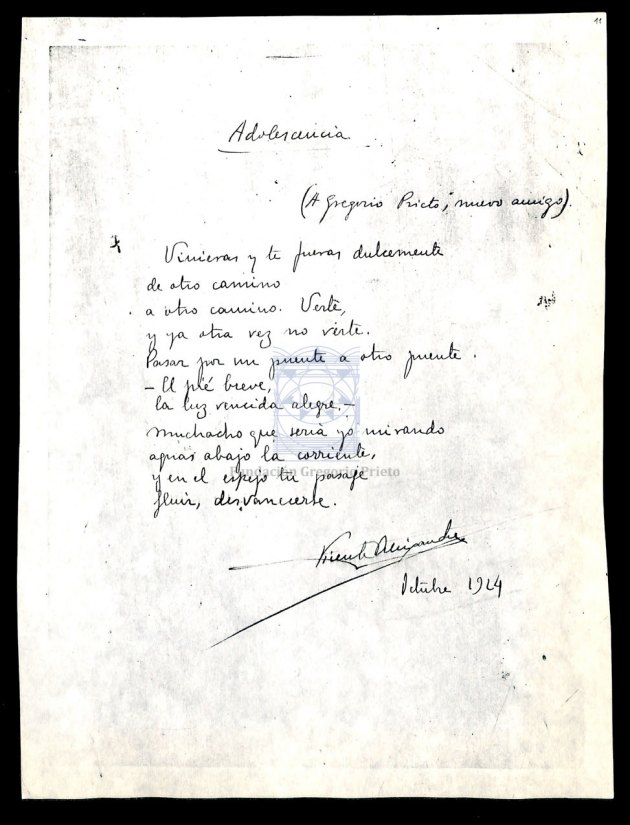 11
Adolescencia
(A Gregorio Prieto, nuevo amigo).
Vinieras y te fueras dulcemente
de otro camino
a otro camino. Verte,
y ya otra vez no verte.
Pasar por un puente a otro puente.
– El pié breve,
la luz vencida alegre. –
muchacho que sería yo mirando
aguas abajo la corriente,
y en el espejo tu pasaje
fluir, desvanecerse.
Fundación Gregorio Prieto
Vicente Aleixandre
Octubre 1924